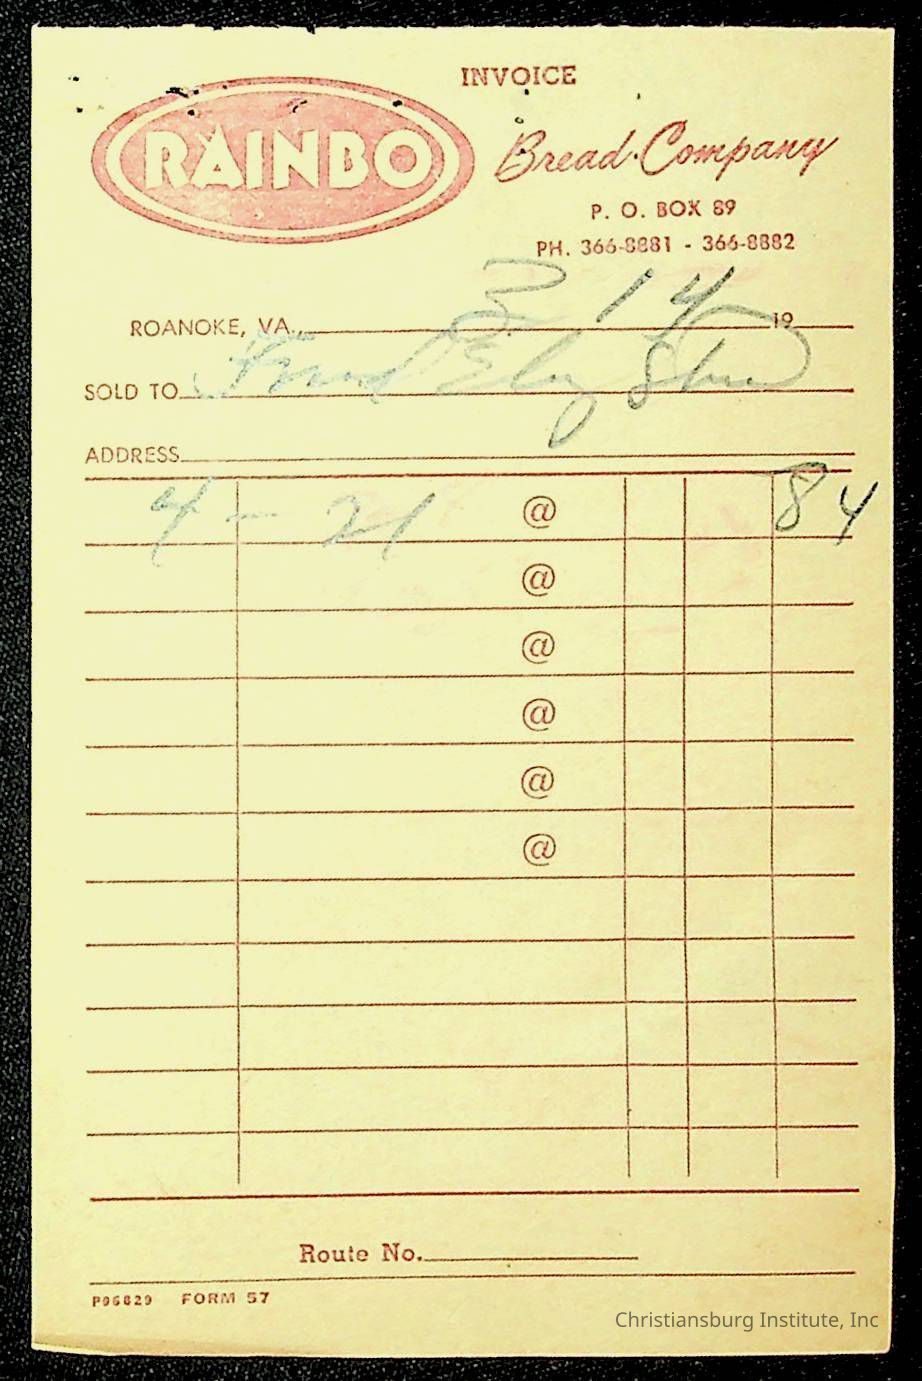 INVOICE
RAINBO
Bread Company
P. O. BOX 89
PH. 366-8881 - 366-8882
ROANOKE, VA. 3 14 19
SOLD TO
ADDRESS
4 - 21 @ 84
@
@
@
@
@
Route No.
P96829 FORM 57
Christiansburg Institute, Inc